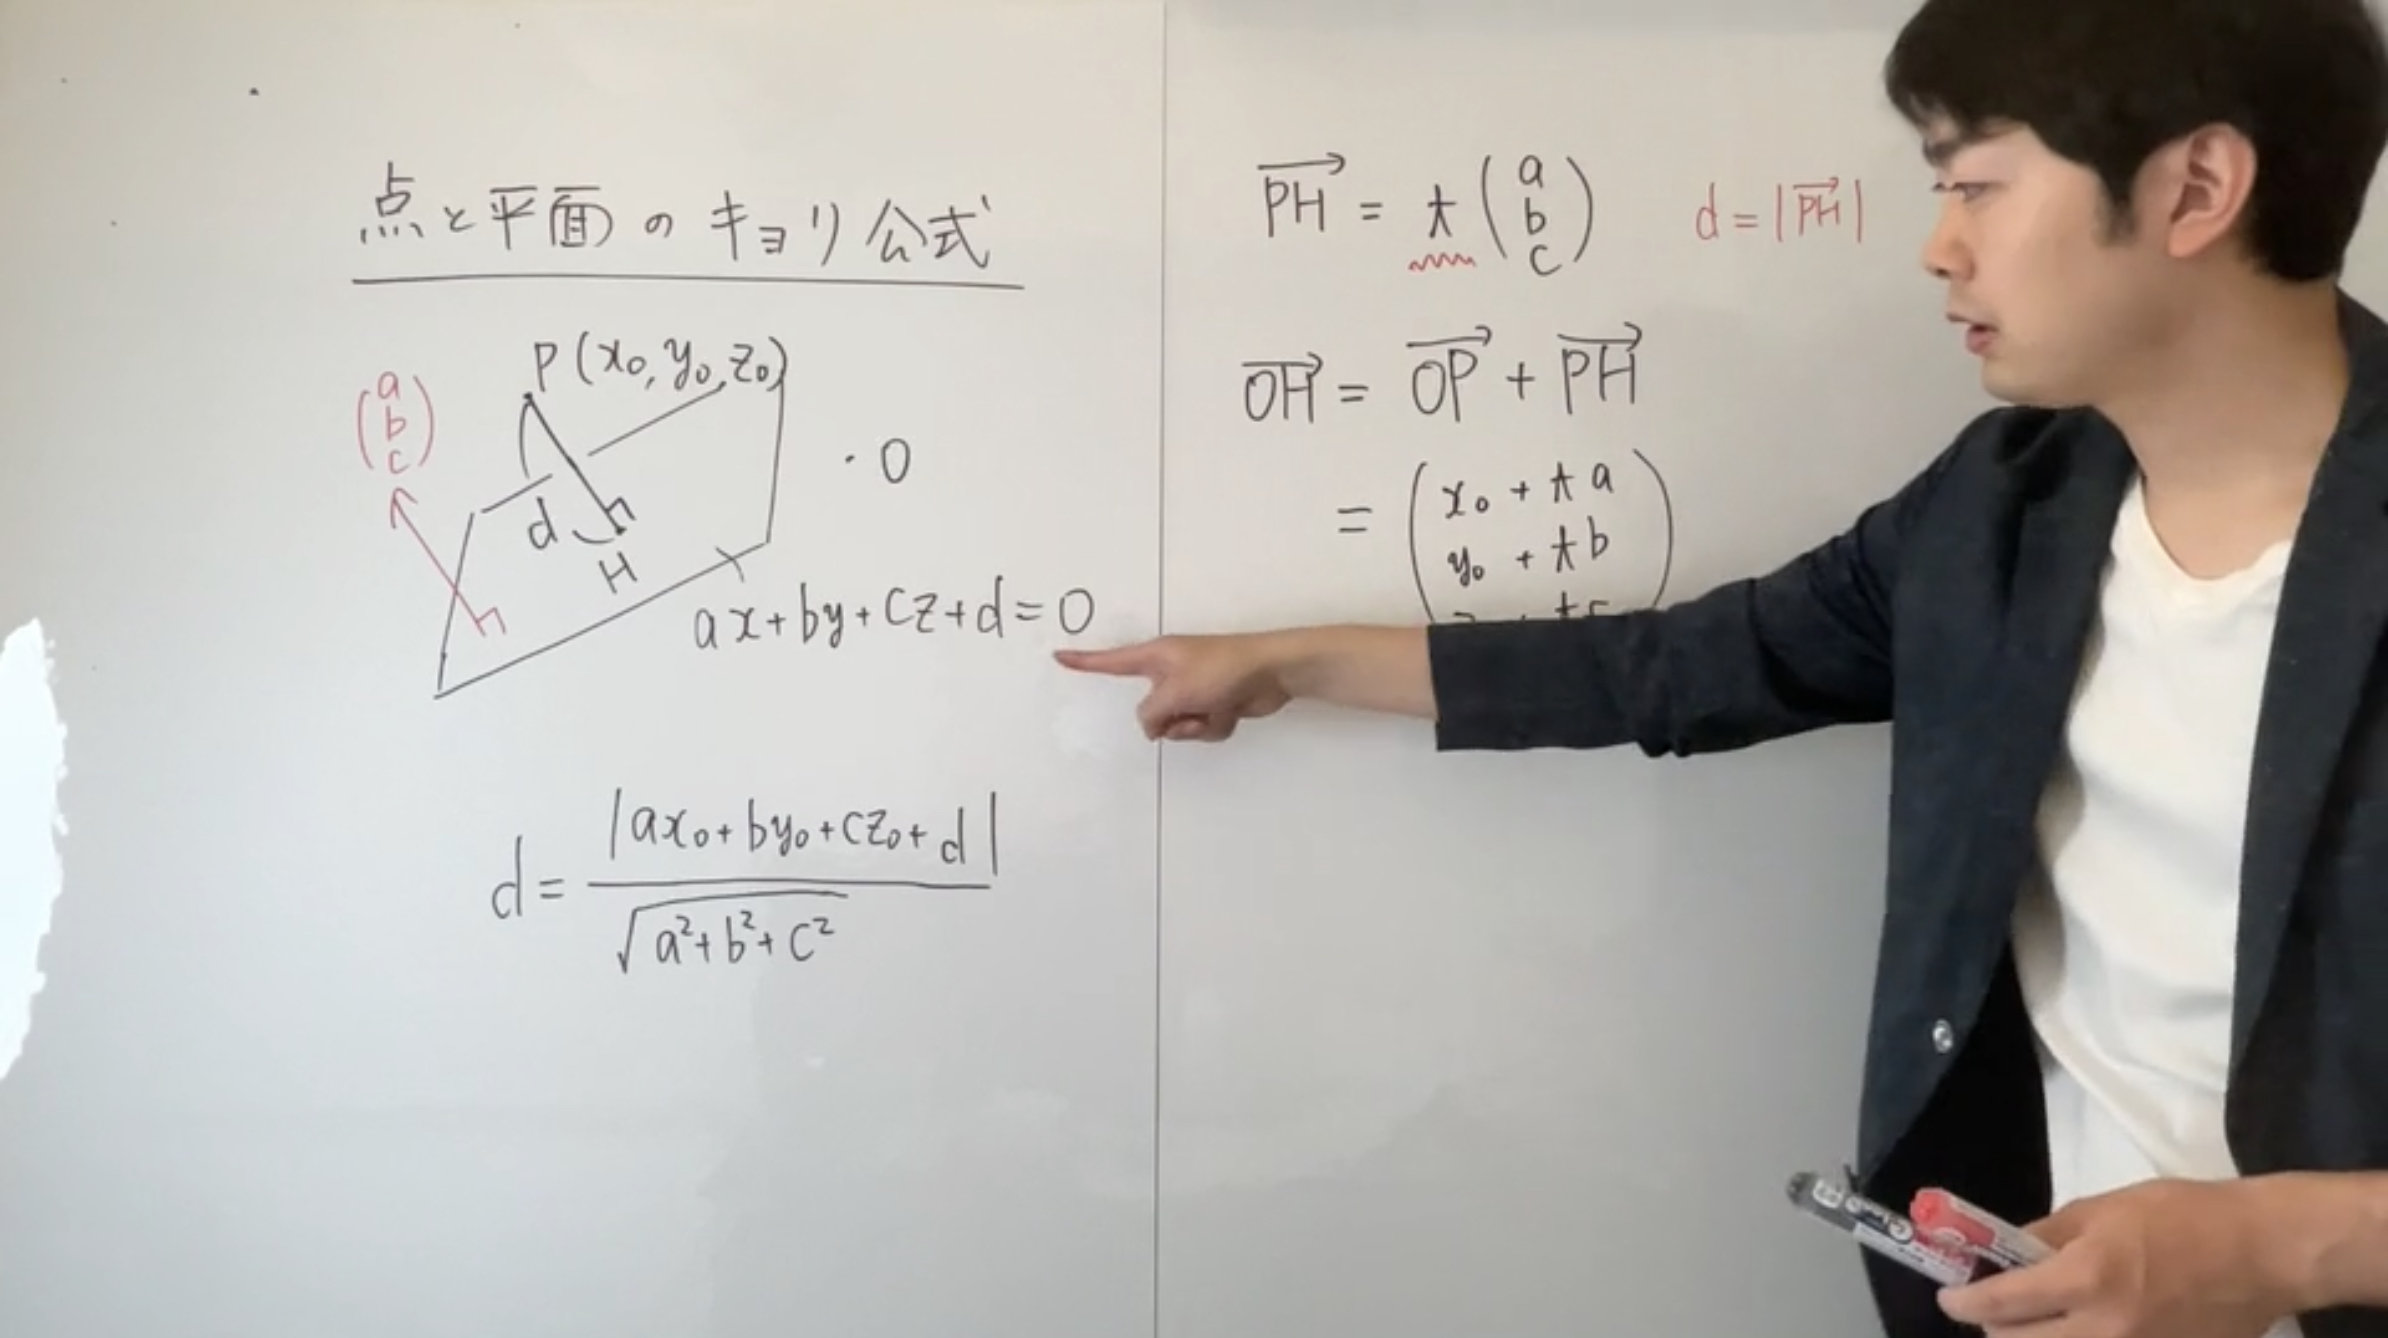 点と平面のキョリ公式
P(x₀, y₀, z₀)
(a b c)
・O
d
H
ax+by+cz+d=0
d = |ax₀+by₀+cz₀+d| / √a²+b²+c²
→PH = t(a b c)
d = |→PH|
→OH = →OP + →PH
= (x₀ + ta
y₀ + tb